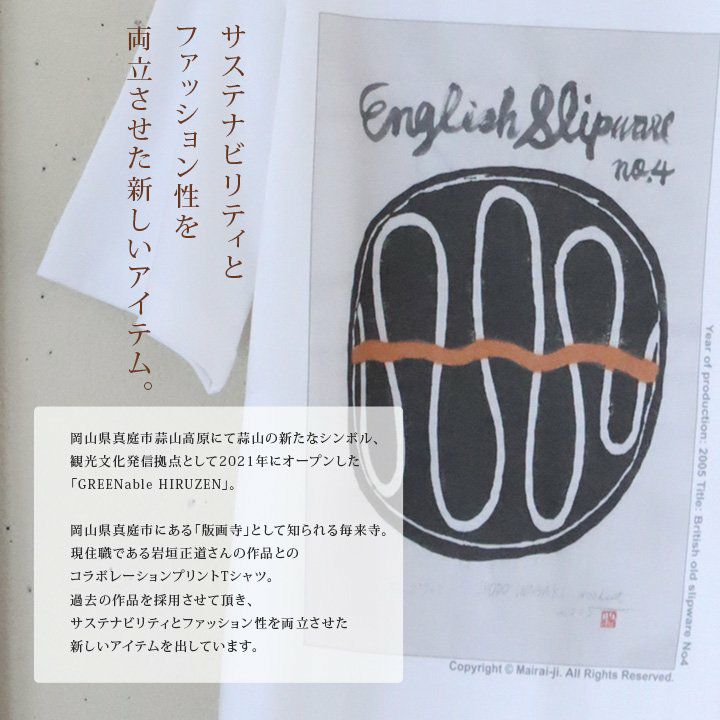 サステナビリティと
ファッション性を
両立させた新しいアイテム。
English Slipware
no.4
岡山県真庭市蒜山高原にて蒜山の新たなシンボル、
観光文化発信拠点として2021年にオープンした
「GREENable HIRUZEN」。
岡山県真庭市にある「版画寺」として知られる毎来寺。
現住職である岩垣正道さんの作品との
コラボレーションプリントTシャツ。
過去の作品を採用させて頂き、
サステナビリティとファッション性を両立させた
新しいアイテムを出しています。
Year of production: 2005 Title: British old slipware No4
Copyright © Mairai-Ji. All Rights Reserved.